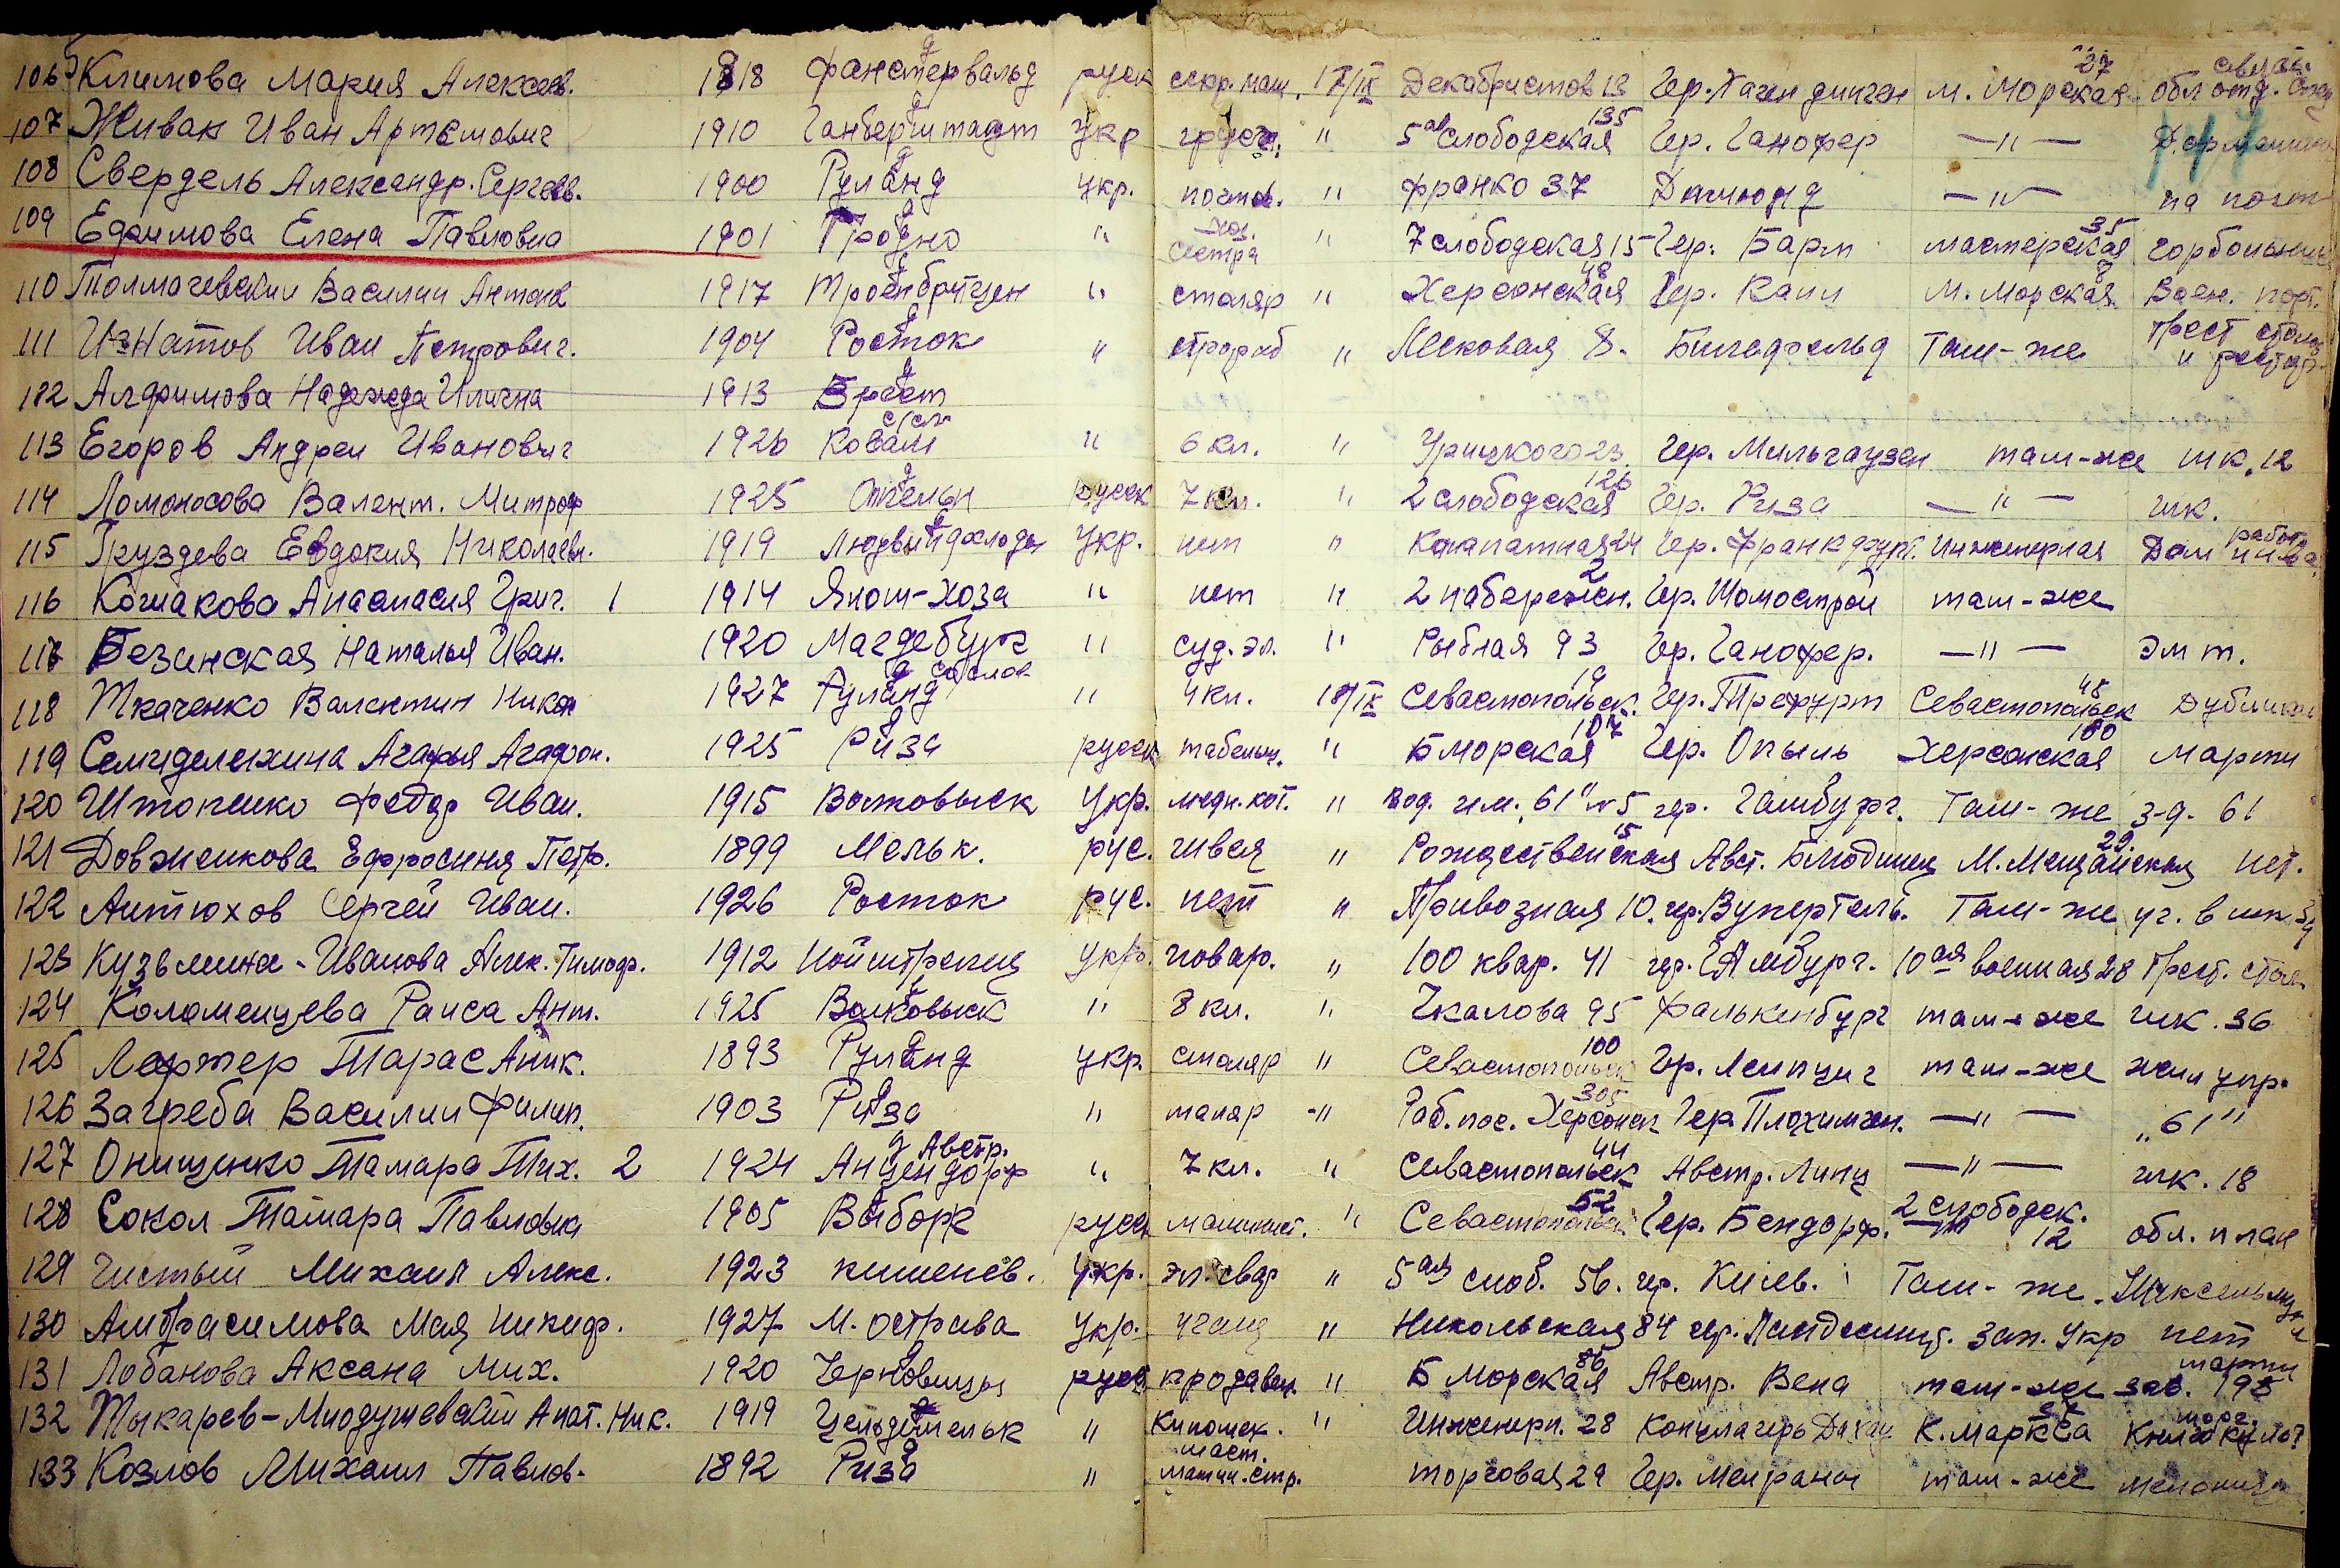 106 Климова Мария Алексеев. 1918 Фанстервальд русск секр. маш. 17/IX Декабристов 13 Гер. Хаген динген м. Морская 27 обл отд. связи
107 Живак Иван Артемович 1910 Ганберштадт укр грузч. " 5ая слободская 135 Гер. Ганофер —"—
108 Свердель Александр. Сергеев. 1900 Руланд укр. почтов. " Франко 37 Дортмонд —"— на почт
109 Ефимова Елена Павловна 1901 Гродно " хоз. сестра " 7 слободская 15 Гер. Барт мастерская 35 горбольниц
110 Толмачевский Василий Антонов 1917 Тройнбритцен " столяр " Херсонская 48 Гер. Каил М. Морская 8 Воен. порт.
111 Игнатов Иван Петрович. 1904 Росток " строраб " Лесковая 8. Билефельд Там-же трест столов и рестор.
112 Алфимова Надежда Илична 1913 Брест
113 Егоров Андрей Иванович 1926 Коваль с/сл " 6 кл. " Урицкого 23 Гер. Мильгаузен там-же шк. 12
114 Ломоносова Валент. Митроф 1925 русск 7 кл. " 2 слободская 126 Гер. Риза —"— шк.
115 Груздева Евдокия Николаевн. 1919 Людвигдхлоде укр. нет " Конапатная 24 Гер. Франкфурт. Инженерная Дом работ
116 Кошакова Анастасия Григ. 1 1914 Яхош-Хоза " нет " 2 набережн. 2 Гер. там-же
116 Безинская Наталья Иван. 1920 Магдебург " суд. эл. " Рыбная 93 Гер. Ганофер. —"— эмт.
118 Ткаченко Валентин Никол 1927 Руланд со слов " 4 кл. 18/IX Севастопольск. 19 Гер. Трефурт Севастопольск 48 Дубинин
119 Семиделихина Агафья Агафон. 1925 Риза русск табельщ. " Б морская 107 Гер. Опыль Херсонская 100 Марти
120 Штопенко Федор Иван. 1915 Волковыск Укр. медн. кот. " Вод. им. 61 №5 гр. Гамбург. Там-же з-д. 61
121 Довженкова Ефросиня Петр. 1899 Мельк. рус. швея " Рождественская 15 Авст. М. Мещанская 29. нет.
122 Антюхов Сергей Иван. 1926 Росток рус. нет " Привозная 10. гер. Вуперталь. Там-же уч. в шк
123 Кузьмина-Иванова Алек. Тимоф. 1912 Нойштрелиц Укр. повар. " 100 квар. 41 гер. Гамбург. 10ая военная 28 трест. стол.
124 Коломенцева Раиса Ант. 1925 Волковыск " 8 кл. " Чкалова 95 Фалькенбург там-же шк. 36
125 Лертер Тарас Аник. 1893 Руланд укр. столяр " Севастопольск 100 Гер. Лейпциг там-же жил упр.
126 Загреба Василий Филип. 1903 Риза " маляр " Раб. пос. Херсонск 305 Гер. —"— „61"
127 Онищенко Тамара Тих. 2 1924 Анцендорф Австр. " 7 кл. " Севастопольск 44 Австр. Линц —"— шк. 18
128 Сокол Тамара Павловна 1905 Выборг русск машинист. " Севастопольск 52 Гер. Бендорф. 2 слободск. 12 обл. план
129 Чистый Михаил Алекс. 1923 кишенёв. Укр. эл. свар " 5ая слоб. 56. гр. Киев. Там-же
130 Амбрасимова Мая Никиф. 1927 М. острава Укр. учащ " Никольская 84 гер. зап. Укр нет
131 Лобанова Аксана Мих. 1920 Черновицы русск продавец. " Б Морская 86 Австр. Вена там-же зав. 198 марти
132 Тыкарев-Миодушевский Анат. Ник. 1919 " Киномех. " Инженерн. 28 Концлагерь Дахау К. Маркса торг.
133 Козлов Михаил Павлов. 1892 Риза " маст. машин. стр. торговая 29 Гер. Мейранн там-же